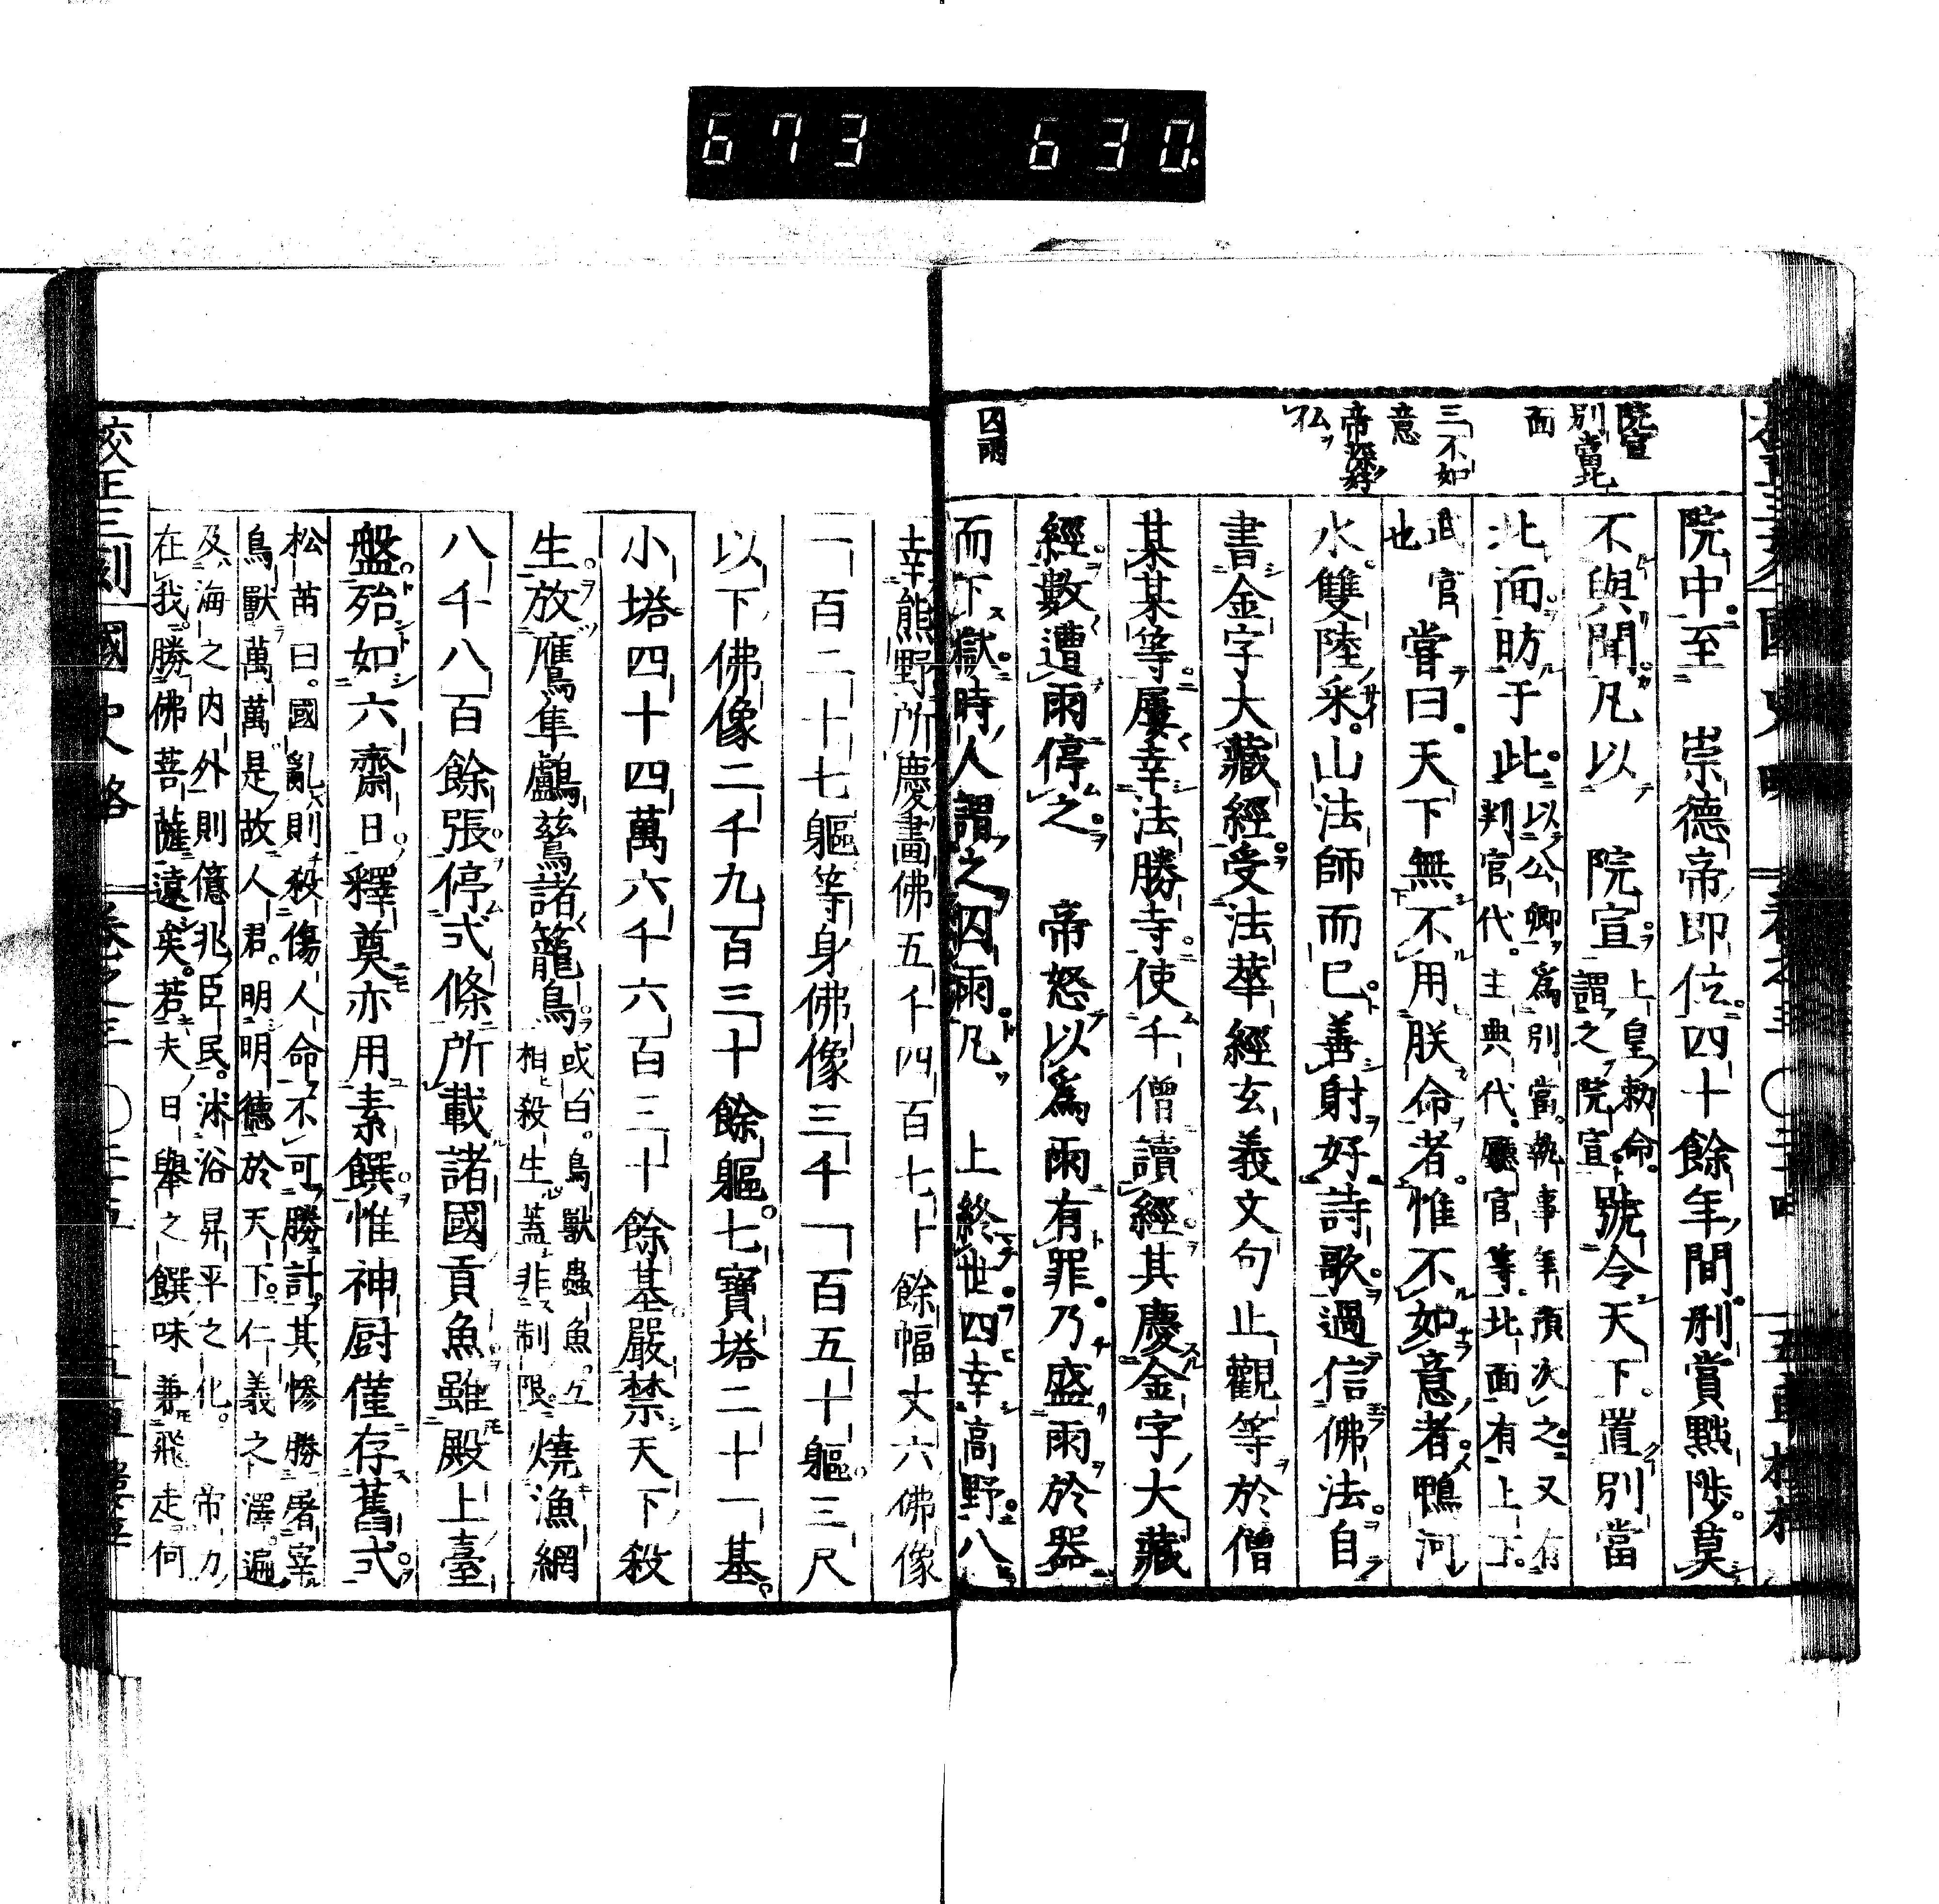 673 630.
院宣
別當北
面
三不如
意
帝深好
仏
囚雨
院中至 崇德帝即位四十餘年間刑賞黜陟莫
不與聞凡以 院宣上皇勅命
謂之院宣號令天下置別當
北面昉于此以公卿爲別當執事年預次之又有
判官代主典代廳官等北面有上下
武官
也嘗曰天下無不用朕命者惟不如意者鴨河
水雙陸采山法師而已善射好詩歌過信佛法自
書金字大藏經受法華經玄義文句止觀等於僧
某某等屢幸法勝寺使千僧讀經其慶金字大藏
經數遭雨停之 帝怒以爲雨有罪乃盛雨於器
而下獄時人謂之囚雨凡 上終世四幸高野八
幸熊野所慶畫佛五千四百七十餘幅丈六佛像
一百二十七軀等身佛像三千一百五十軀三尺
以下佛像二千九百三十餘軀七寶塔二十一基
小塔四十四萬六千六百三十餘基嚴禁天下殺
生放鷹隼鸕鶿諸籠鳥或曰鳥獸蟲魚互
相殺生蓋非制限燒漁網
八千八百餘張停式條所載諸國貢魚雖殿上臺
盤殆如六齋日釋奠亦用素饌惟神厨僅存舊式
松苗曰國亂則殺傷人命不可勝計其慘勝屠宰
鳥獸萬萬是故人君明明德於天下仁義之澤遍
及海之內外則億兆臣民沐浴昇平之化 帝力
在我勝佛菩薩遠矣若夫日舉之饌味兼飛走何
校正三刻 國史略 卷之三 〇三十五